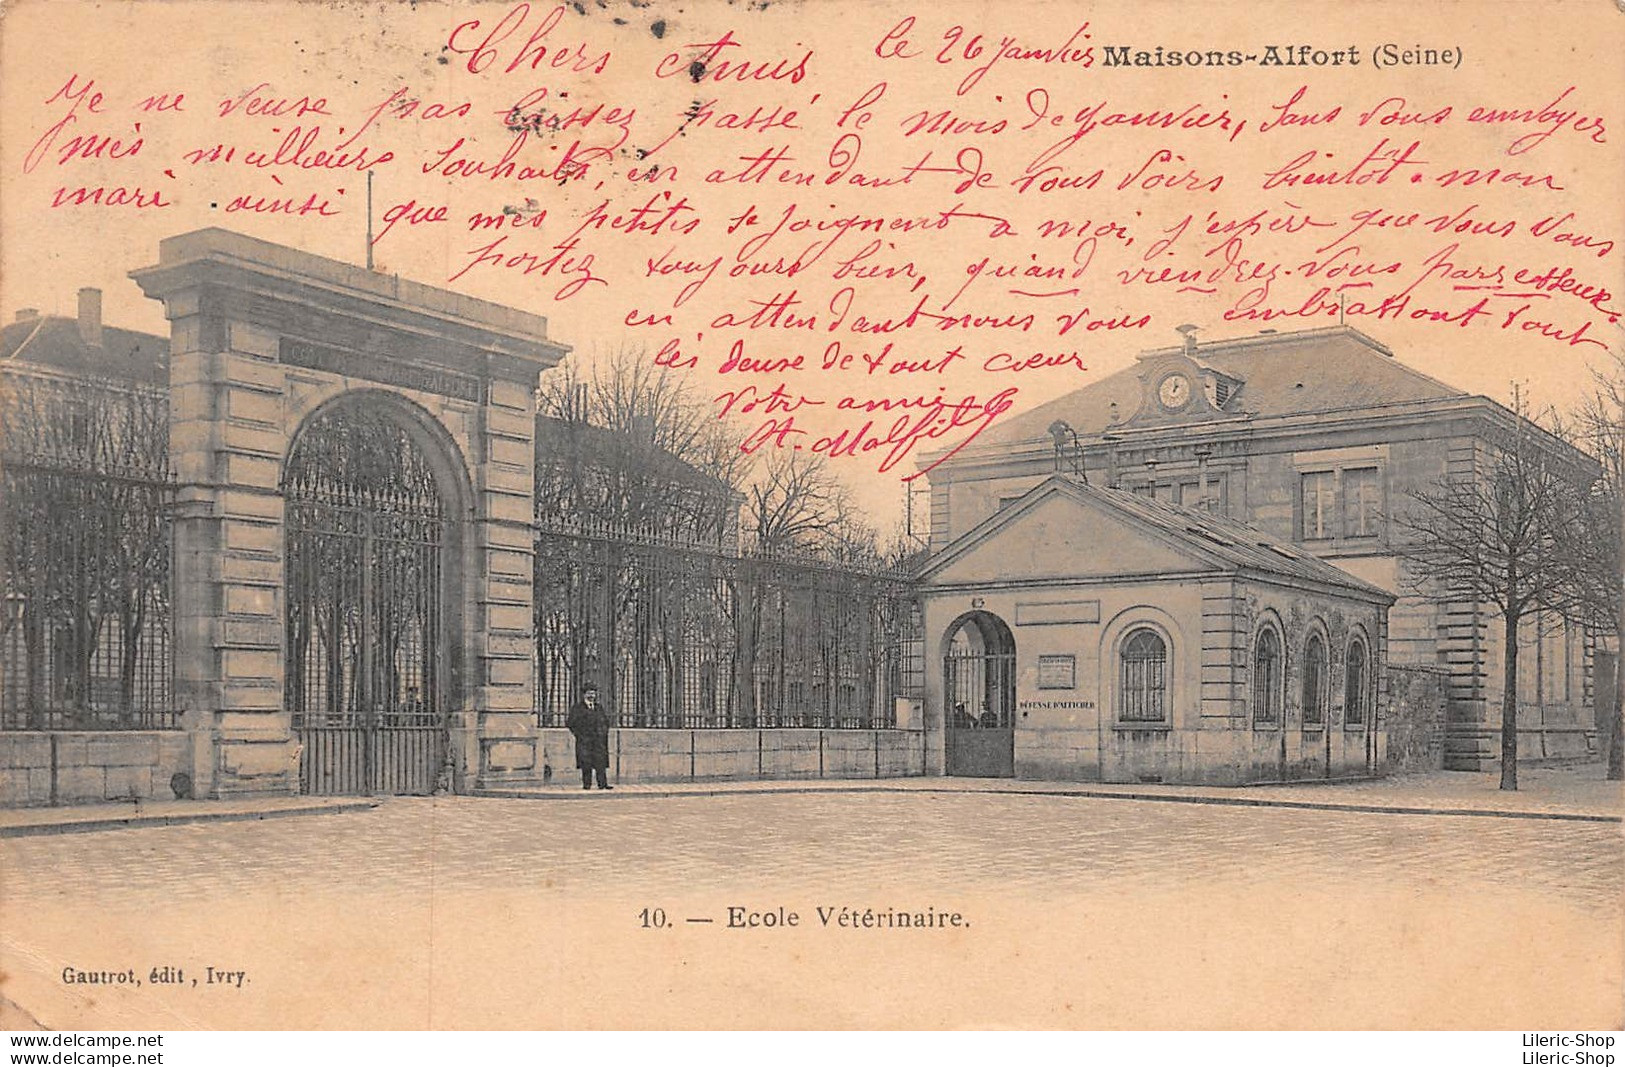 Chers Amis
le 26 Janvier
Maisons-Alfort (Seine)
Je ne veuse pas laissez passé le mois de Janvier, sans vous envoyer
mes meillieurs souhaits, en attendant de vous voirs bientôt. mon
mari ainsi que mes petits se joignent a moi, j'espère que vous vous
portez toujours bien, quand viendrez-vous parresseux.
en attendant nous vous embrassont tout
les deuse de tout cœur
Votre amie
A. Malfil
DÉFENSE D'AFFICHER
10. — Ecole Vétérinaire.
Gautrot, édit, Ivry.
Lileric-Shop
Lileric-Shop
Lileric-Shop
Lileric-Shop